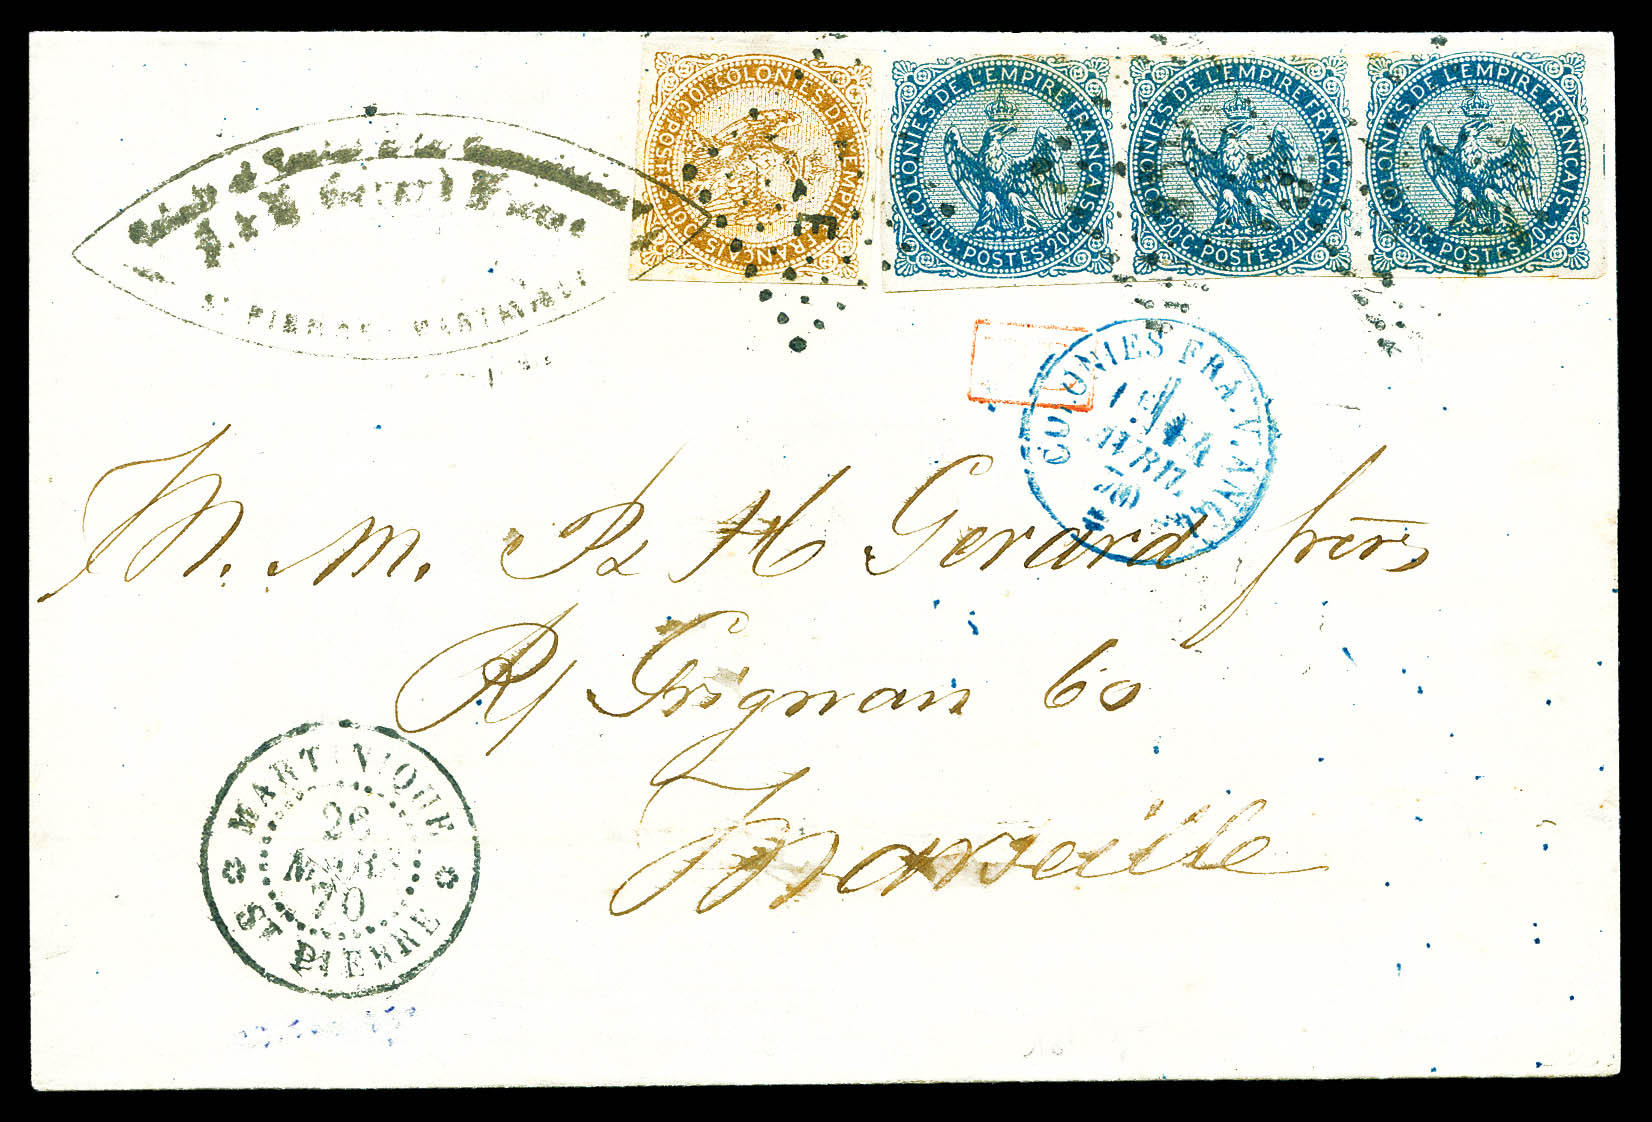 COLONIES DE L'EMPIRE FRANÇAIS
10 C. POSTES. 10 C.
COLONIES DE L'EMPIRE FRANÇAIS.
20 C. POSTES. 20 C.
COLONIES DE L'EMPIRE FRANÇAIS.
20 C. POSTES. 20 C.
COLONIES DE L'EMPIRE FRANÇAIS.
20 C. POSTES. 20 C.
St PIERRE MARTINIQUE
COLONIES FRA. V. ANG.
AVRIL
70
M. M. P & H Gerard frères
R/ Grignan 60
Marseille
MARTINIQUE
26
MARS
70
St PIERRE